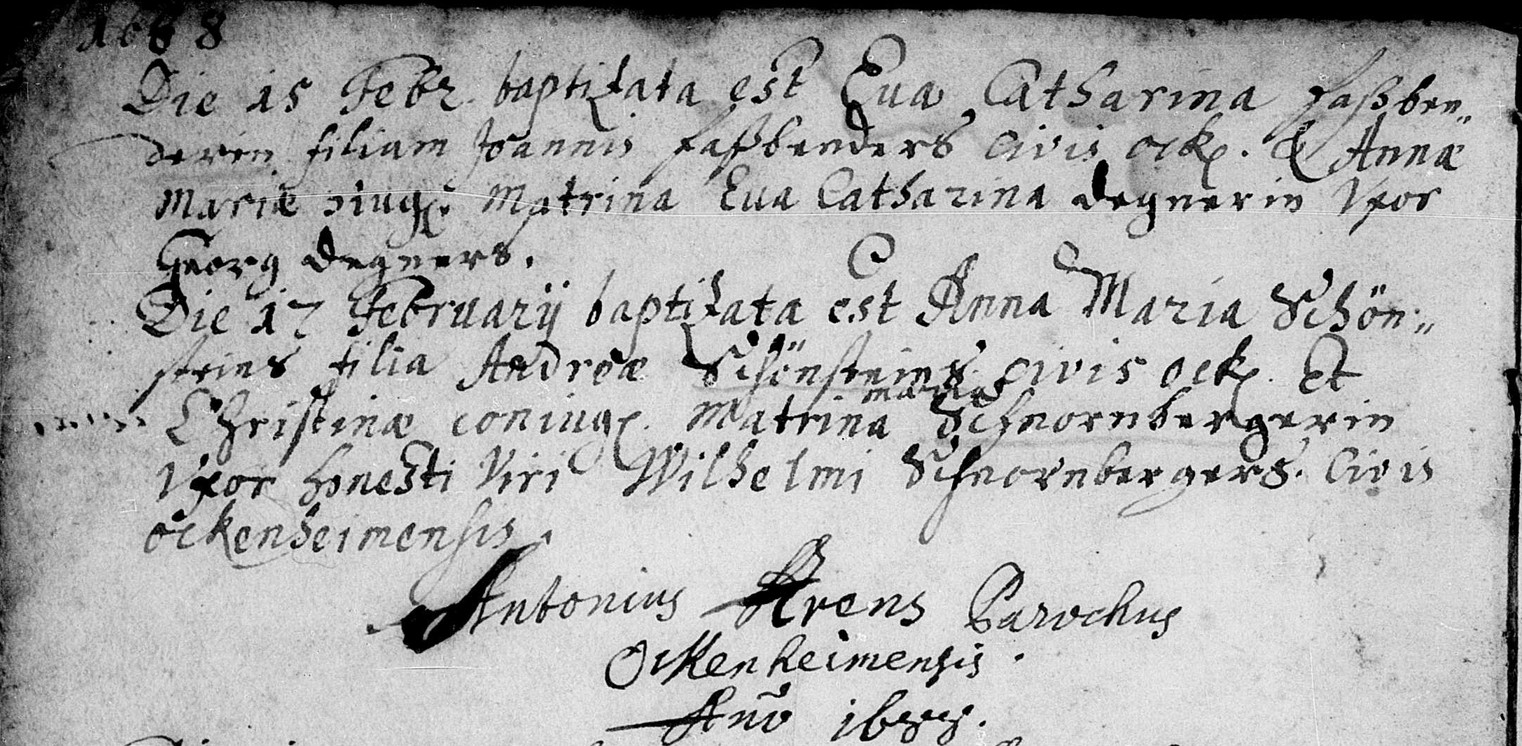 1688
Die 15 Febr. baptizata est Eva Catharina Faßben„
derin filiam Joannis Faßbenders civis ock. & Annæ
Mariæ siug. Matrina Eva Catharina Degnerin Uxor
Georg Degners.
Die 17 Februarij baptizata est Anna Maria Schön„
steins filia Andreæ Schönsteins civis ock. Et
Christinæ coniug. Matrina Maria Schnornbergerin
Uxor honesti Viri Wilhelmi Schnornbergers. Civis
ockenheimensis.
Antonius Arens Parochus
Ockenheimensis.
Año 1688.